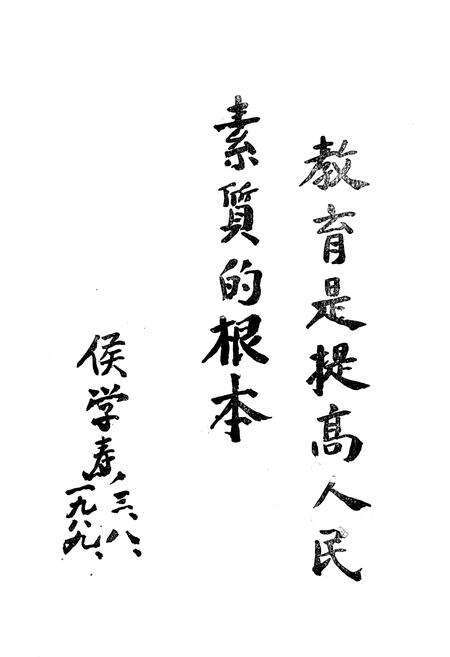 教育是提高人民
素質的根本
侯学寿
一九八九、
三、八、